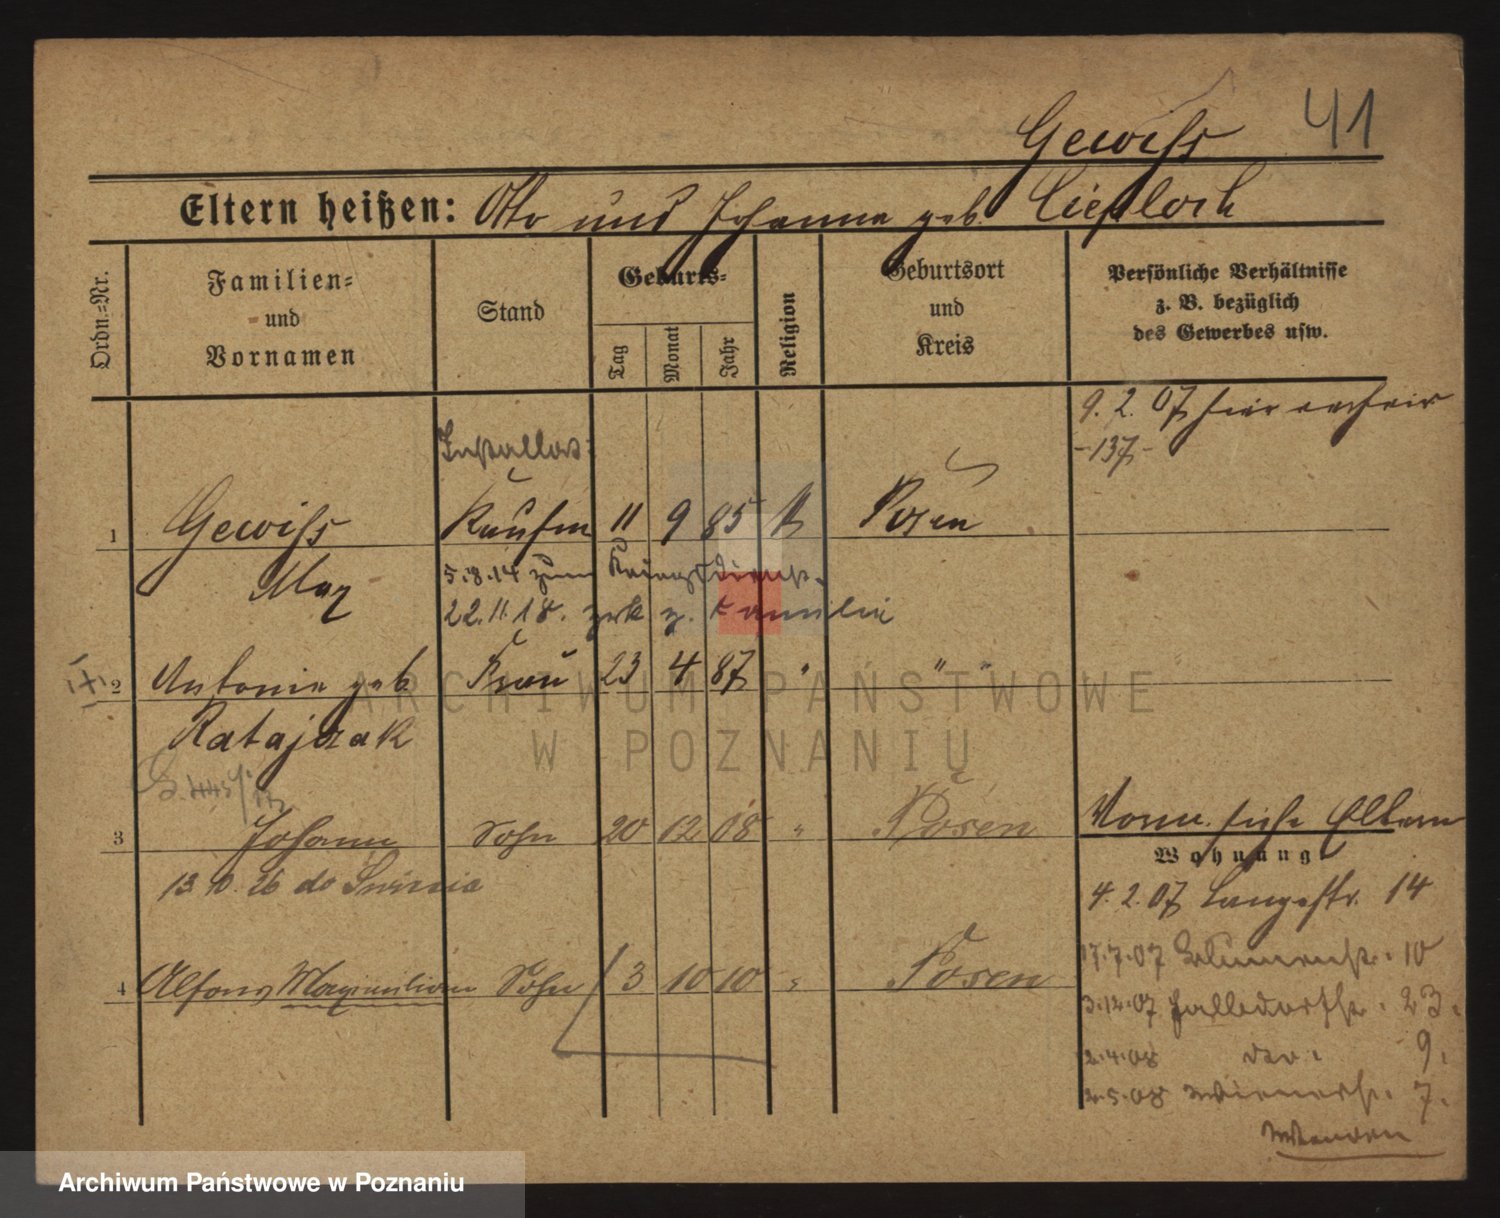 41
Gewiss
Eltern heißen: Otto und Johanna geb. Ciesloch
Ordn.-Nr.
Familien-
und
Vornamen
Stand
Geburts-
Tag
Monat
Jahr
Religion
Geburtsort
und
Kreis
Persönliche Verhältnisse
z. B. bezüglich
des Gewerbes usw.
9. 2. 07 hier
-137-
1 Gewiss Kaufm 11 9 85 K Posen
Max
5.8.14 zum Kriegsdienst.
22.11.18. zrk z. Familie
2 Antonie geb. Frau 23 4 87 " " "
Ratajczak
3 Johann Sohn 20 12 08 " Posen
13.10.26 do
4 Alfons Maximilian Sohn 3 10 10 " Posen
Vorm. siehe Eltern
Wohnung
4. 2. 07 Langestr. 14
17.7.07 Blumenstr. 10
3.12.07 23.
2.4.08 9.
2.5.08 Wienerstr. 7.
Wenden
ARCHIWUM PAŃSTWOWE
W POZNANIU
Archiwum Państwowe w Poznaniu